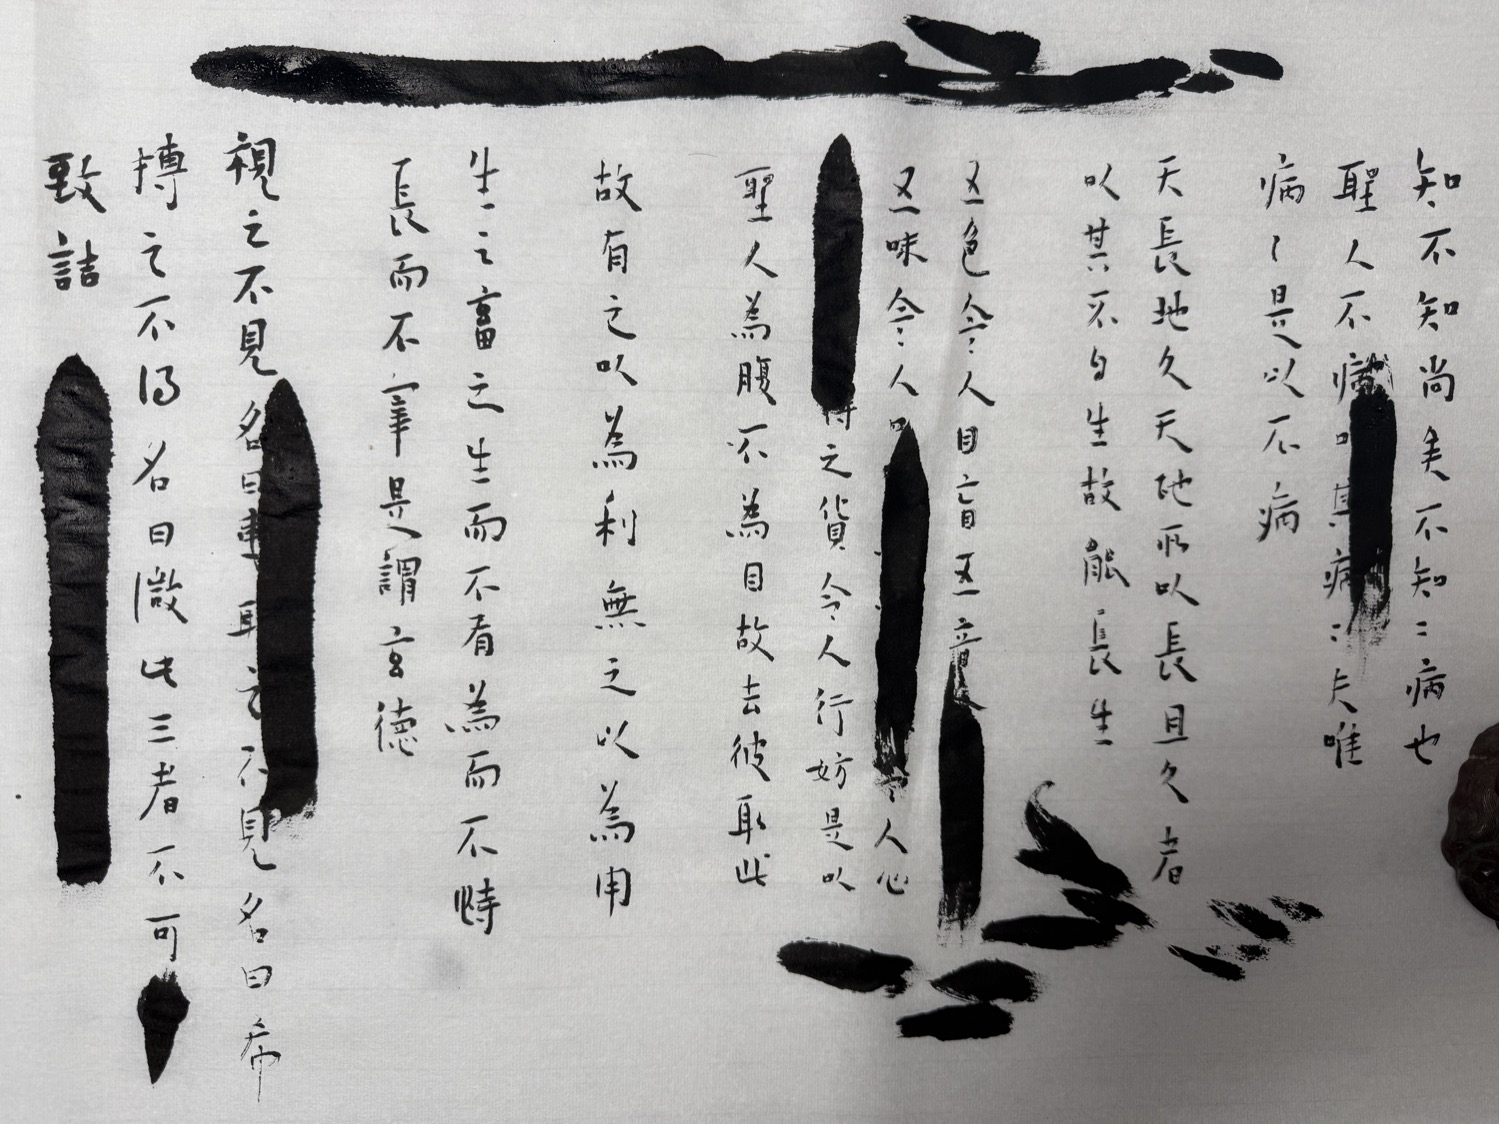 知不知尚美不知二病也
聖人不病以其病二夫唯
病〻是以不病
天長地久天地所以長且久者
以其不自生故能長生
五色令人目盲五音
五味令人口令人心
得之貨令人行妨是以
聖人為腹不為目故去彼取此
故有之以為利無之以為用
生之畜之生而不有為而不恃
長而不宰是謂玄德
視之不見名曰聽之不見名曰希
搏之不得名曰微此三者不可
致詰